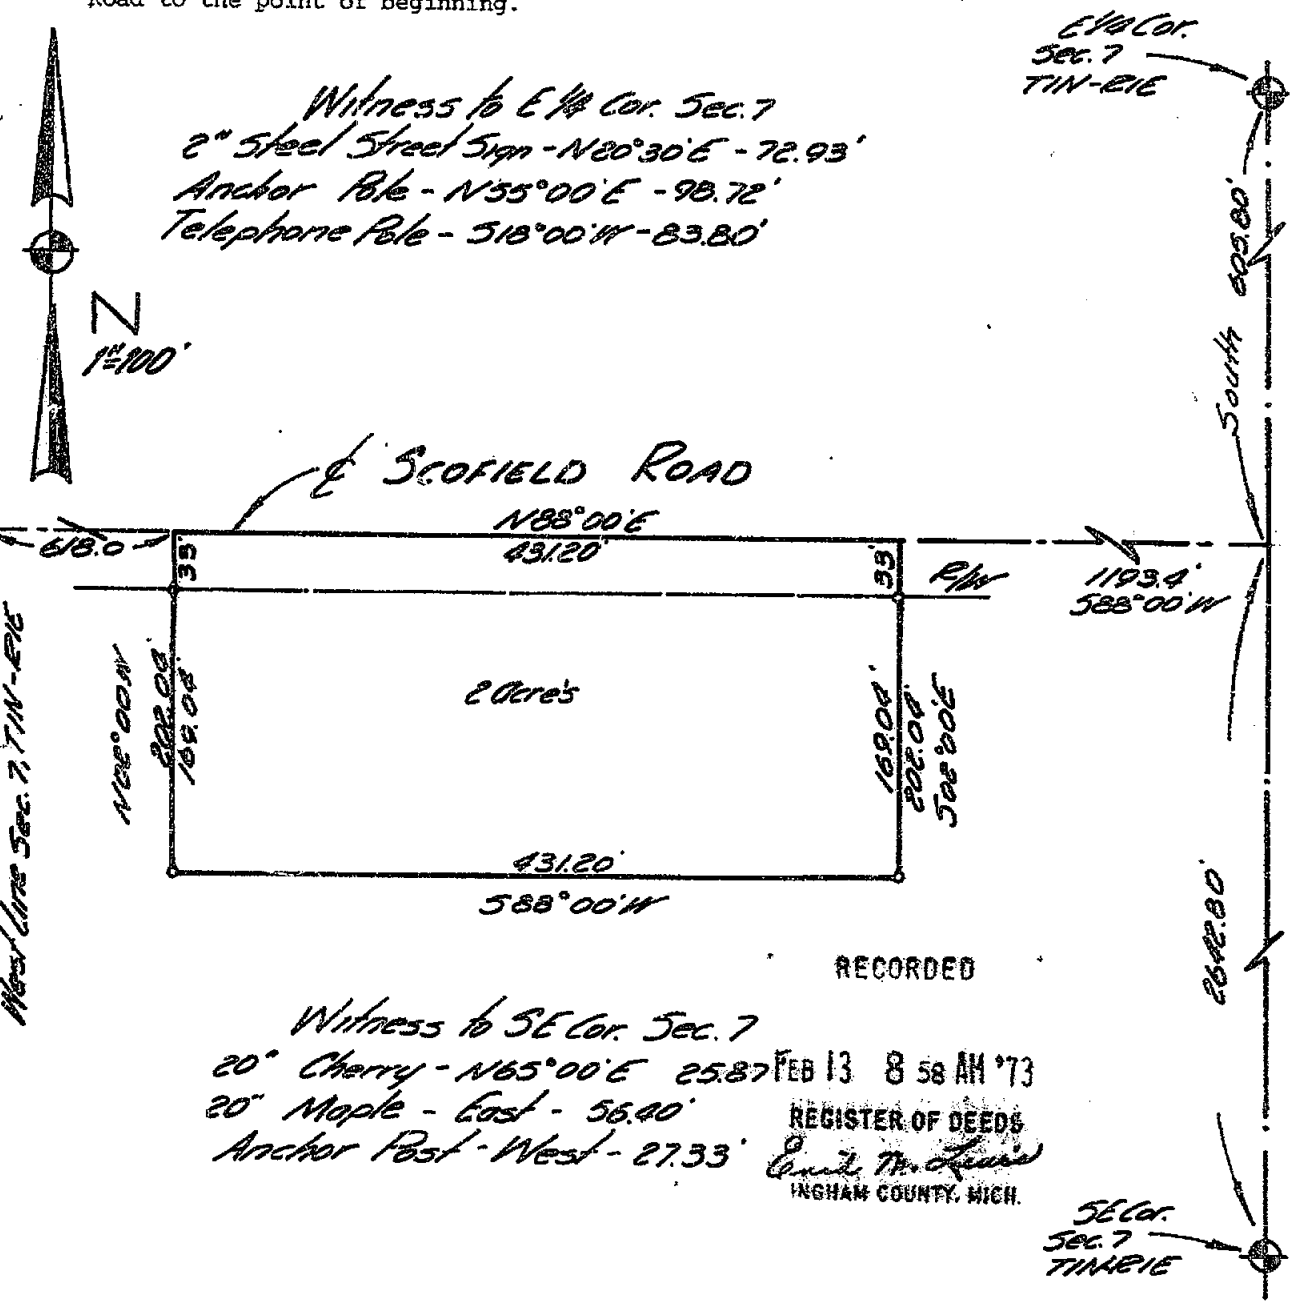 Road to the point of beginning.
E 1/4 Cor.
Sec. 7
T1N-R1E
Witness to E 1/4 Cor. Sec. 7
2" Steel Street Sign - N20°30'E - 72.93'
Anchor Pole - N55°00'E - 98.72'
Telephone Pole - S18°00'W - 83.80'
N
1"=100'
South 605.80'
℄ SCOFIELD ROAD
N88°00'E
431.20'
618.0
33
33'
R/W
1193.4'
S88°00'W
West Line Sec. 7, T1N-R1E
N02°00'W
202.04'
169.04'
2 Acre's
169.04'
202.04'
S02°00'E
431.20'
S88°00'W
2642.80'
RECORDED
Witness to SE Cor. Sec. 7
20" Cherry - N65°00'E 25.87
20" Maple - East - 56.40'
Anchor Post - West - 27.33'
FEB 13 8 58 AM '73
REGISTER OF DEEDS
Enid M. Lewis
INGHAM COUNTY, MICH.
SE Cor.
Sec. 7
T1N-R1E